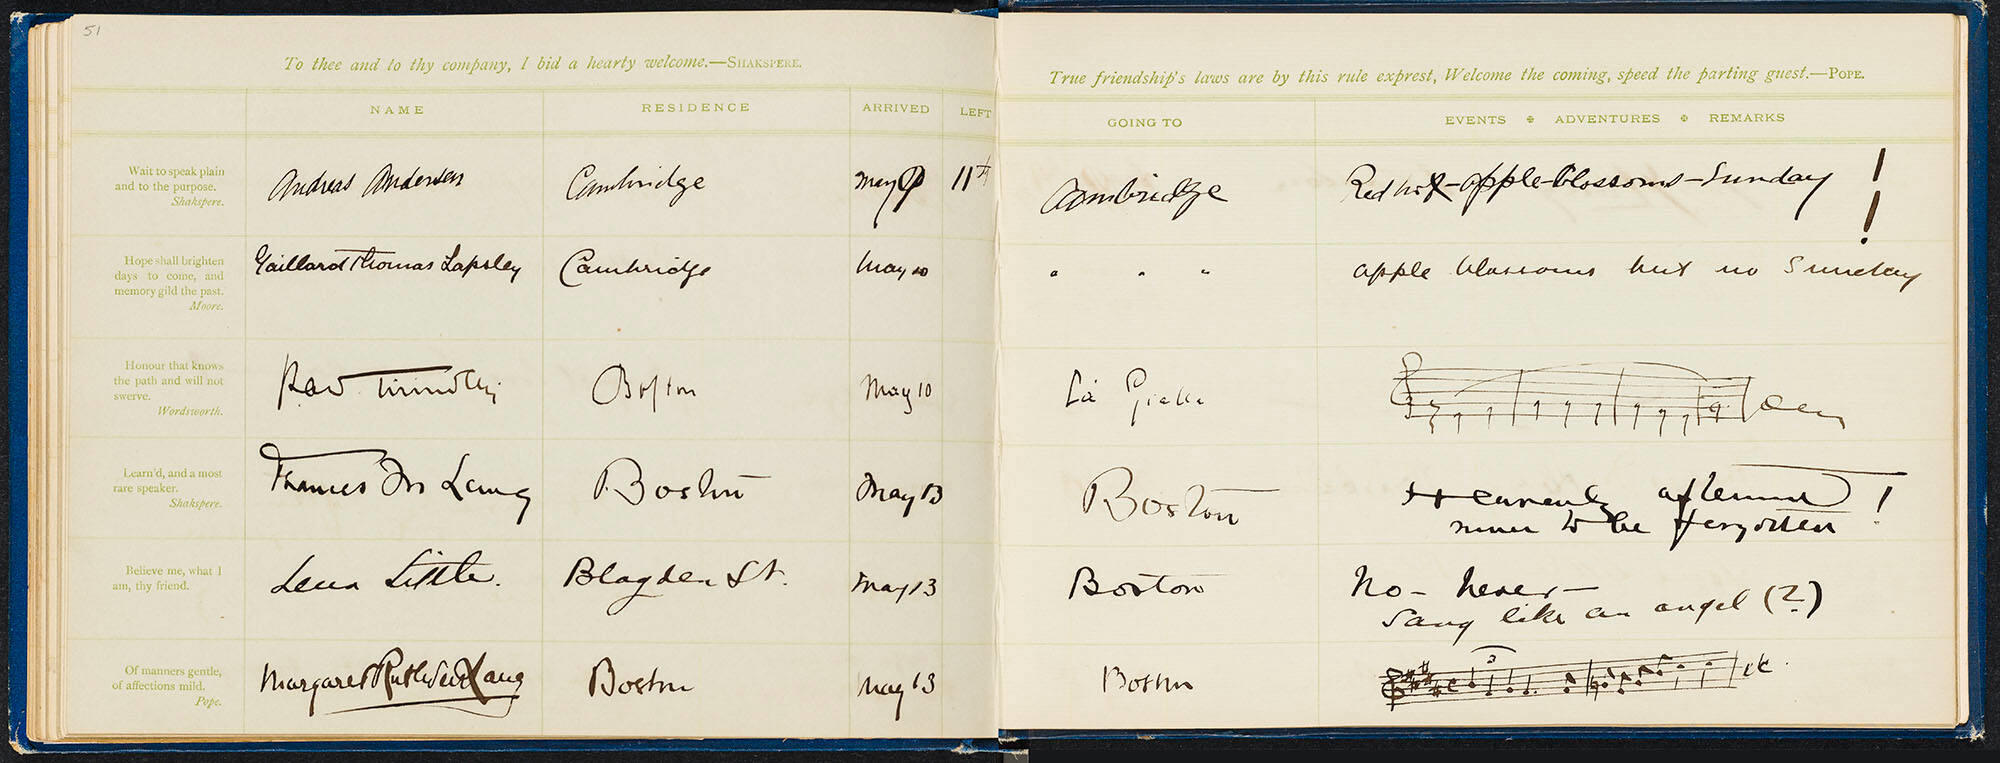 51
To thee and to thy company, I bid a hearty welcome.—SHAKSPERE.
NAME RESIDENCE ARRIVED LEFT
True friendship's laws are by this rule exprest, Welcome the coming, speed the parting guest.—POPE.
GOING TO EVENTS ✠ ADVENTURES ✠ REMARKS
Wait to speak plain
and to the purpose.
Shakspere.
Andreas Andersen Cambridge May 11th Cambridge Red hot-apple-blossoms-Sunday !!
Hope shall brighten
days to come, and
memory gild the past.
Moore.
Gaillard Thomas Lapsley Cambridge May 10 " " " apple blossoms but no Sunday
Honour that knows
the path and will not
swerve.
Wordsworth.
Boston May 10
Learn'd, and a most
rare speaker.
Shakspere.
Frances Lang Boston May 13 Boston Heavenly afternoon !
never to be forgotten
Believe me, what I
am, thy friend.
Lena Little. Blagden St. May 13 Boston No - never -
Sang like an angel (?)
Of manners gentle,
of affections mild.
Pope.
Margaret Ruthven Lang Boston May 13 Boston 3 etc.